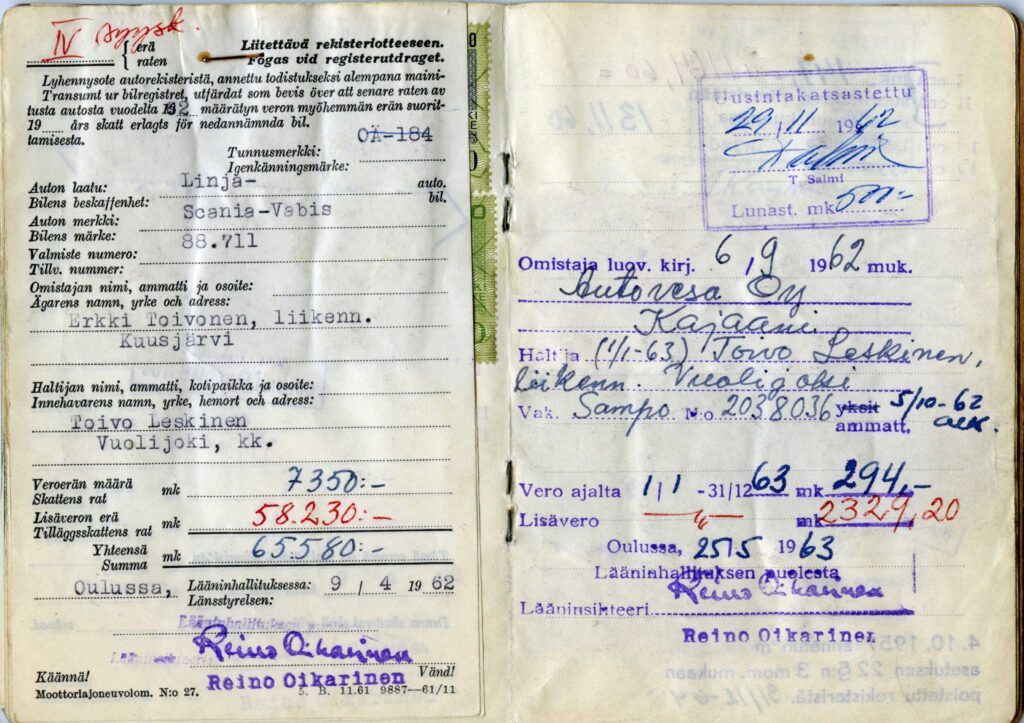 IV syysk.
erä
raten
Liitettävä rekisteriotteeseen.
Fogas vid registerutdraget.
Lyhennysote autorekisteristä, annettu todistukseksi alempana maini-
Transumt ur bilregistret, utfärdat som bevis över att senare raten av
tusta autosta vuodelta 192 määrätyn veron myöhemmän erän suorit-
19 års skatt erlagts för nedannämnda bil.
tamisesta.
OÄ-184
Tunnusmerkki:
Igenkänningsmärke:
Auton laatu: Linja- auto.
Bilens beskaffenhet: bil.
Auton merkki: Scania-Vabis
Bilens märke:
Valmiste numero: 88.711
Tillv. nummer:
Omistajan nimi, ammatti ja osoite:
Ägarens namn, yrke och adress:
Erkki Toivonen, liikenn.
Kuusjärvi
Haltijan nimi, ammatti, kotipaikka ja osoite:
Innehavarens namn, yrke, hemort och adress:
Toivo Leskinen
Vuolijoki, kk.
Veroerän määrä
Skattens rat mk 7350:-
Lisäveron erä
Tilläggsskattens rat mk 58.230:-
Yhteensä
Summa mk 65.580:-
Oulussa, Lääninhallituksessa: 9 / 4 1962
Länsstyrelsen:
Lääninhallit
Lääninsihteeri:
Reino Oikarinen
Reino Oikarinen
Käännä! Vänd!
Moottoriajoneuvolom. N:o 27. 5. B. 11.61 9887—61/11
Uusintakatsastettu
29/11 1962
Salmi
T. Salmi
Lunast. mk 500:-
Omistaja luov. kirj. 6/9 1962 muk.
Autovesa Oy
Kajaani
Haltija (1/1-63) Toivo Leskinen,
liikenn. Vuolijoki
Vak. Sampo N:o 2038036 yksit 5/10-62
ammatt. alk.
Vero ajalta 1/1 -31/12 63 mk 294,-
Lisävero —"— mk 2329,20
Oulussa, 25/5 1963
Lääninhallituksen puolesta
Reino Oikarinen
Lääninsihteeri
Reino Oikarinen
4.10.1957 annetun
asetuksen 22 §:n 3 mom. mukaan
poistettu rekisteristä 31/12-64